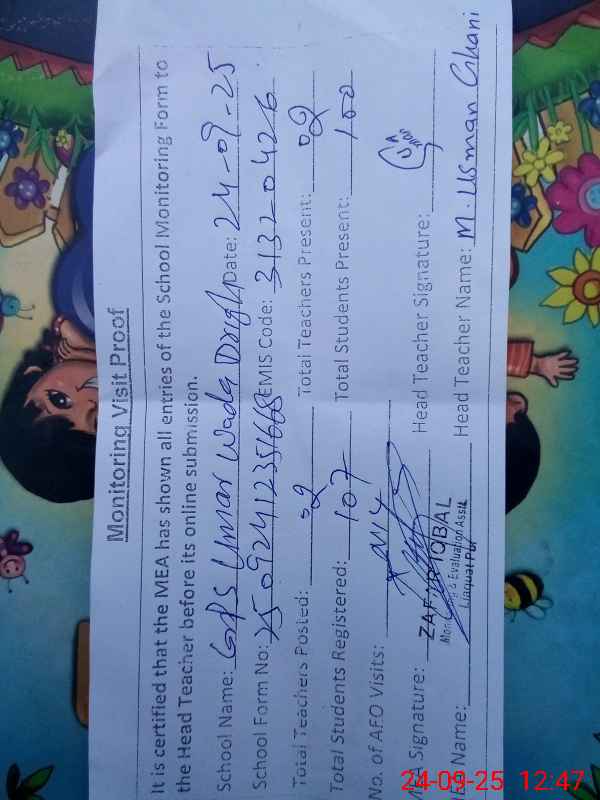 Monitoring Visit Proof
It is certified that the MEA has shown all entries of the School Monitoring Form to
the Head Teacher before its online submission.
School Name: GPS Umar Wada Date: 24-09-25
School Form No: EMIS Code: 31320426
Total Teachers Posted: 02 Total Teachers Present: 02
Total Students Registered: 107 Total Students Present: 100
No. of AFO Visits:
MEA Signature: Head Teacher Signature:
ZAFAR IQBAL
Monitoring & Evaluation Asstt
Liaquat Pur
Name: Head Teacher Name: M. Usman Ghani
24-09-25 12:47